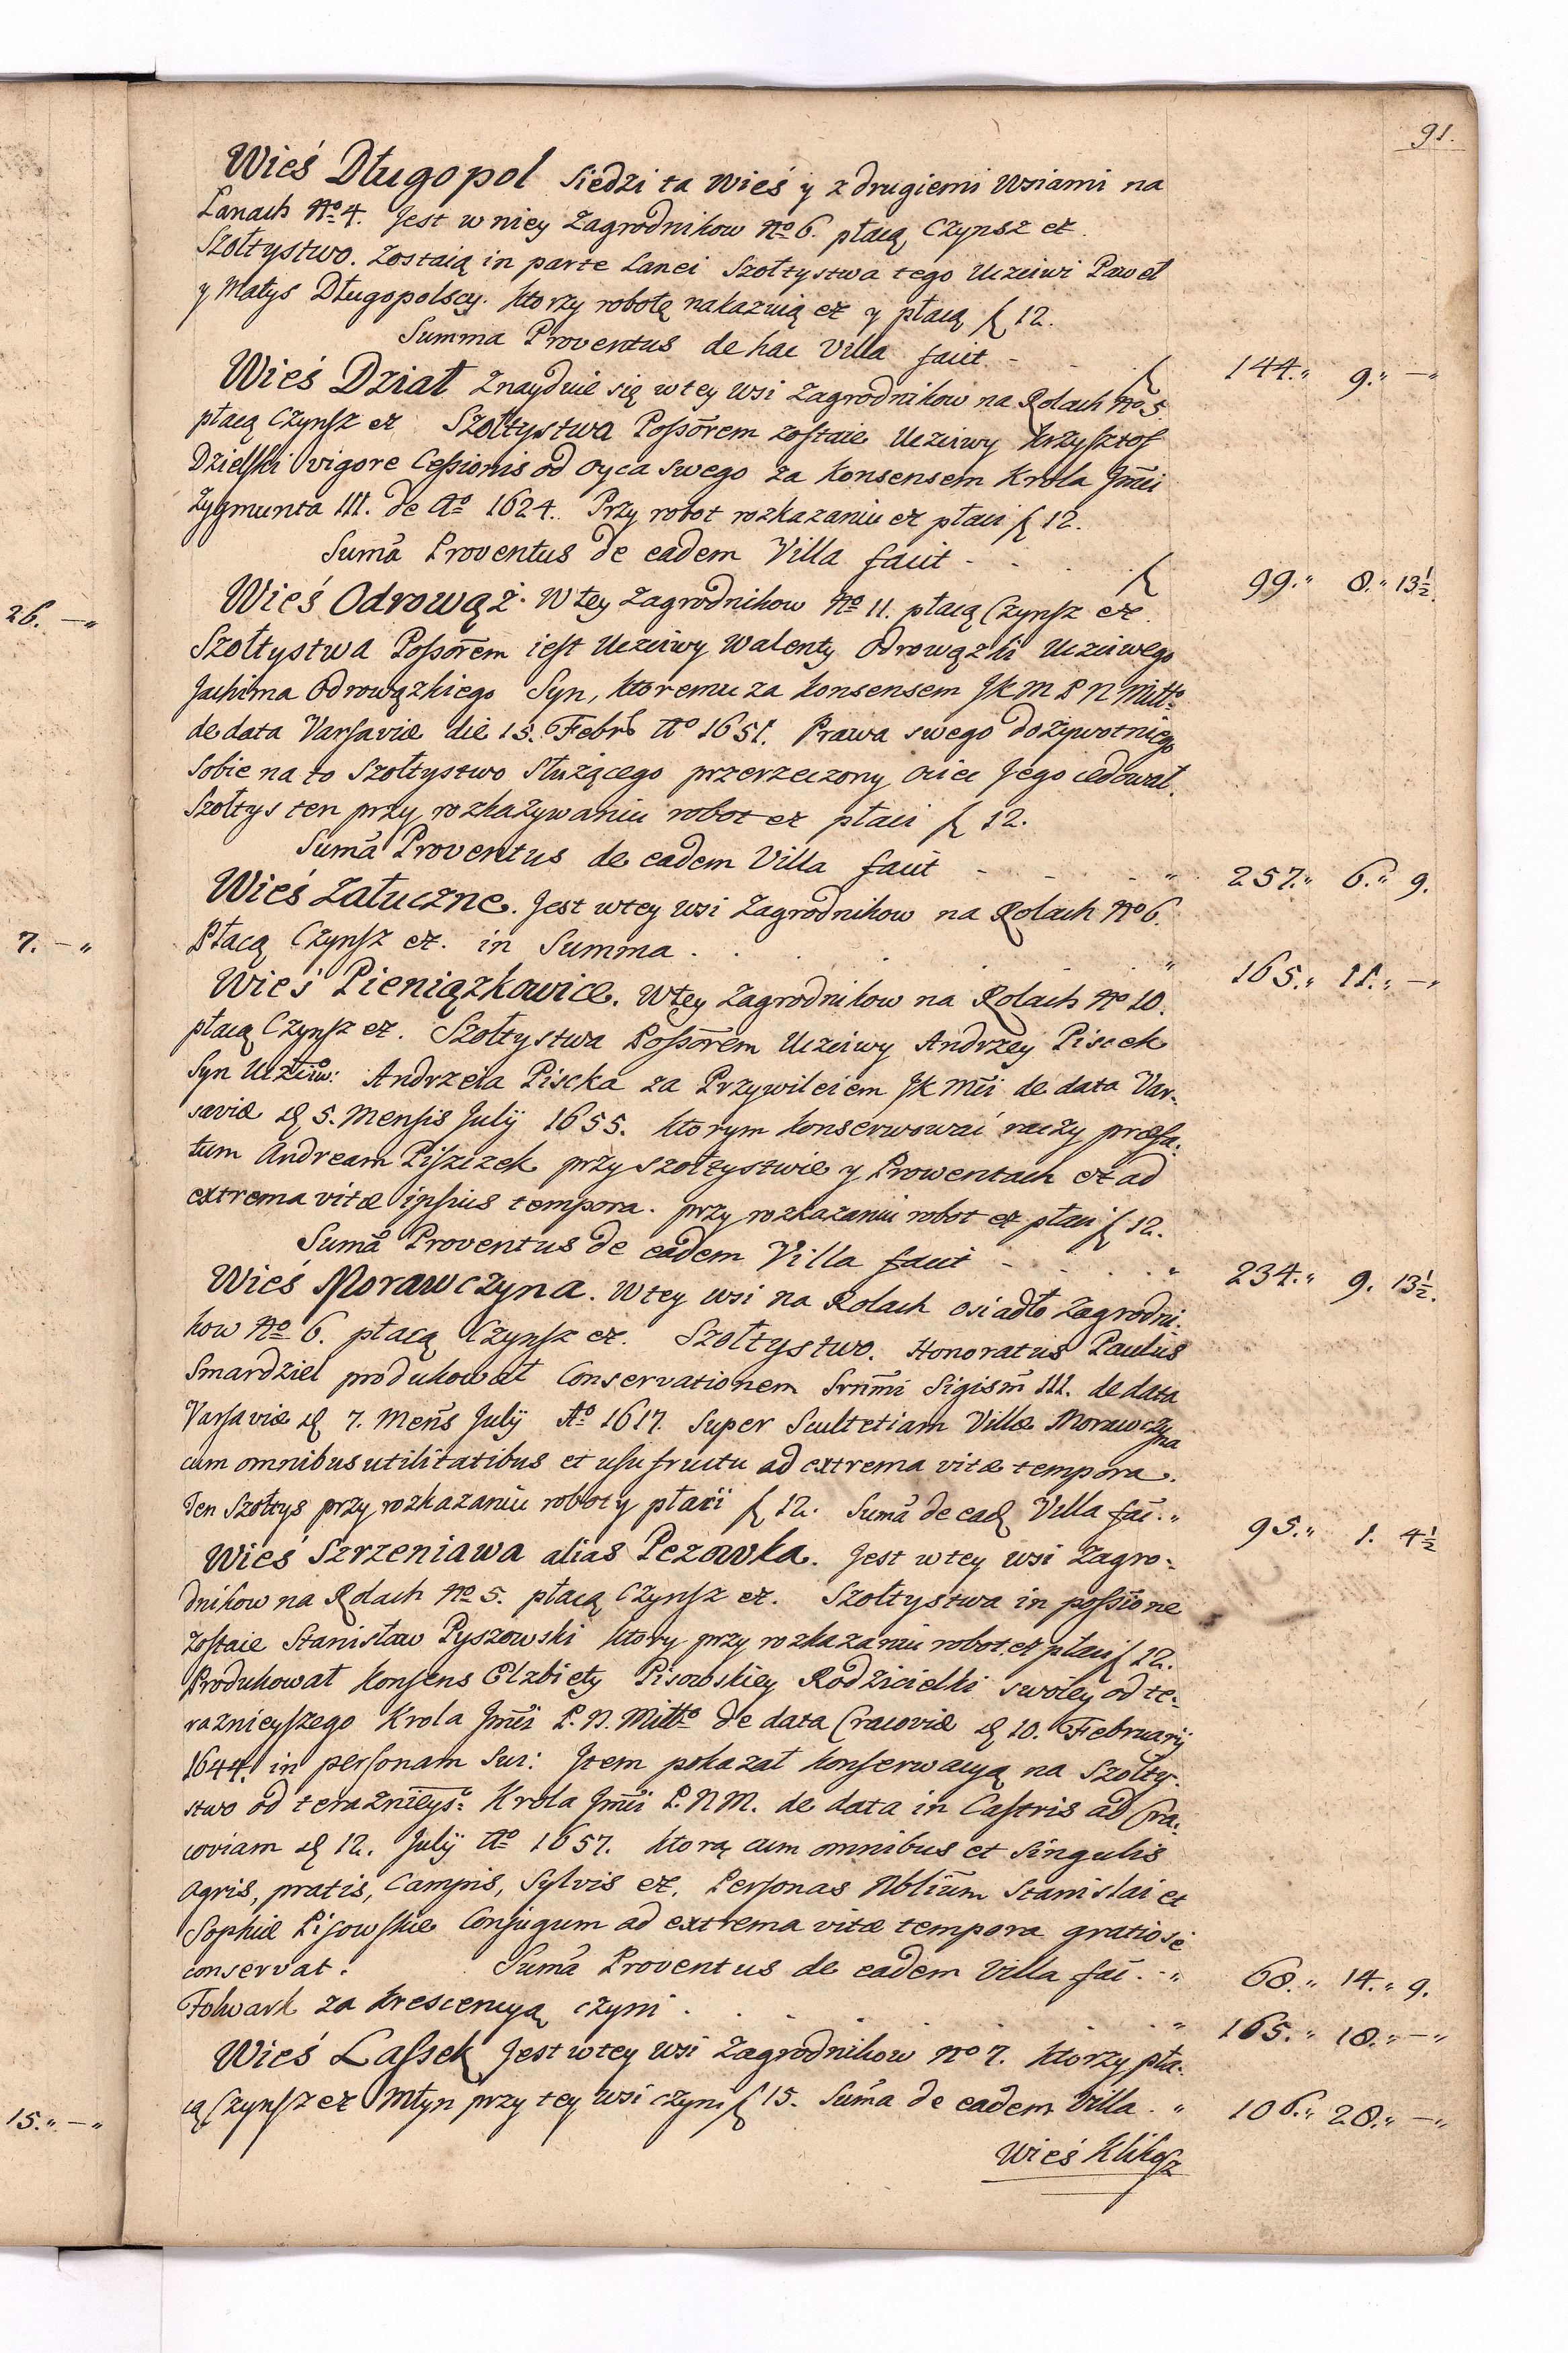 91.
Wieś Długopol Siedzi ta Wieś y z drugiemi Wsiami na
Łanach No 4. Jest w niey Zagrodnikow No 6. płacą Czynsz et.
Szołtystwo. Zostaią in parte Lanei Szołtystwa tego Uczciwi Paweł
y Matys Długopolscy. ktorzy robotę nakazuią et y płacą f 12.
Summa Proventus de hac Villa facit - f 144.„ 9.„ —„
Wieś Dział Znayduie się w tey wsi Zagrodnikow na Rolach No 5.
płacą Czynsz et. Szołtystwa Possorem zostaie Uczciwy Krzysztof
Dzielski vigore Cessionis od oyca swego za Konsensem Krola Jmci
Zygmunta III. de Ao 1624. Przy robot rozkazaniu et płaci f 12.
Suma Proventus de eadem Villa facit - . . . f 99.„ 8.„ 13½.
Wieś Odrowąż. W tey Zagrodnikow No 11. płacą Czynsz et.
Szołtystwa Possorem iest Uczciwy Walenty Odrowązki Uczciwego
Jachima Odrowązkiego Syn, ktoremu za konsensem JK M P N Mitto
de data Varsaviæ die 15. Febr Ao 1651. Prawa swego dożywotniego
Sobie na to Szołtystwo Służącego przerzeczony ociec Jego cedował.
Szołtys ten przy rozkazywaniu robot et płaci f 12.
Suma Proventus de eadem Villa facit - - - . „ 257.„ 6.„ 9.
Wieś Załuczne. Jest w tey wsi Zagrodnikow na Rolach No 6.
Płacą Czynsz et. in Summa . . . . . „ 165.„ 11.„ —„
Wieś Pieniązkowice. W tey Zagrodnikow na Rolach No 10.
płacą Czynsz et. Szołtystwa Possorem Uczciwy Andrzey Piscek
Syn Uczciw: Andrzeia Piscka za Przywileiem JK Mci de data Var-
saviæ d 5. Mensis July 1655. ktorym konserwować raczy præfa-
tum Andream Piszczek przy szołtystwie y Prowentach et ad
extrema vitæ ipsius tempora. przy rozkazaniu robot et płaci f 12.
Suma Proventus de eadem Villa facit - . . . „ 234.„ 9. 13½.
Wieś Morawczyna. W tey wsi na Rolach osiadło Zagrodni-
kow No 6. płacą Czynsz et. Szołtystwo. Honoratus Paulus
Smardziel produkował Conservationem Srnmi Sigism III. de data
Varsaviæ d 7. Mens July Ao 1617. Super Scultetiam Villæ Morawczyna
cum omnibus utilitatibus et usufructu ad extrema vitæ tempora.
Ten Szołtys przy rozkazaniu robot y płacii f 12. Suma de ead Villa fac.„ 95.„ 1. 4½
Wieś Szrzeniawa alias Pezowka. Jest w tey wsi Zagro-
dnikow na Rolach No 5. płacą Czynsz et. Szołtystwa in possione
zostaie Stanisław Pyszowski ktory przy rozkazaniu robot et płaci f 12.
Produkował Konsens Elzbiety Pisowskiey Rodzicielki swoiey od te-
raznieyszego Krola Jmci P. N. Mitto de data Cracoviæ d 10. Februarij
1644. in personam Sui: Item pokazał konserwacyą na Szołty-
stwo od teraznieys: Krola Jmci P. N M. de data in Castris ad Cra-
coviam d 12. July Ao 1657. ktorą cum omnibus et Singulis
agris, pratis, Campis, Sylvis et. Personas Nblium Stanislai et
Sophiæ Pisowskie Conjugum ad extrema vitæ tempora gratiose
conservat. Suma Proventus de eadem Villa fac. - „ 68.„ 14.„ 9.
Folwark za krescencyą czyni . . . . . „ 165.„ 18.„ —„
Wieś Lassek Jest w tey wsi Zagrodnikow No 7. ktorzy pła-
cą Czynsz et Młyn przy tey wsi czyni f 15. Suma de eadem Villa . „ 106.„ 28.„ —„
Wieś Klikosz
26. —„
7. — „
15.„ —„